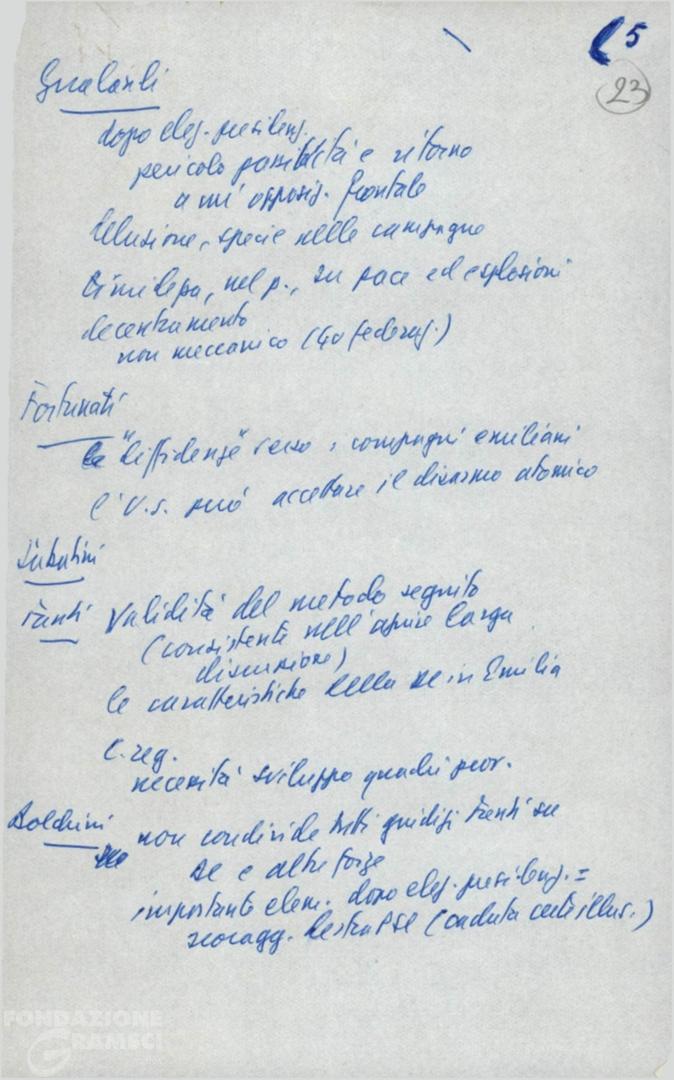 5
23
Gualandi
dopo elez. presidenz.
pericolo passività e ritorno
a un' opposiz. frontale
delusione, specie nelle campagne
timidezza, nel p., su pace ed esplosioni
decentramento
non meccanico (40 federaz.)
Fortunati
le "diffidenze" verso i compagni emiliani
l'U.S. può accettare il disarmo atomico
Sabatini
Fanti validità del metodo seguito
(consistente nell'aprire larga
discussione)
le caratteristiche della DC in Emilia
C. reg.
necessità sviluppo quadri prov.
Boldrini
non condivide tutti giudizi Fanti su
DC e altre forze
importante elem. dopo elez. presidenz. =
scoragg. destra PSI (caduta certe illus.)
FONDAZIONE
GRAMSCI